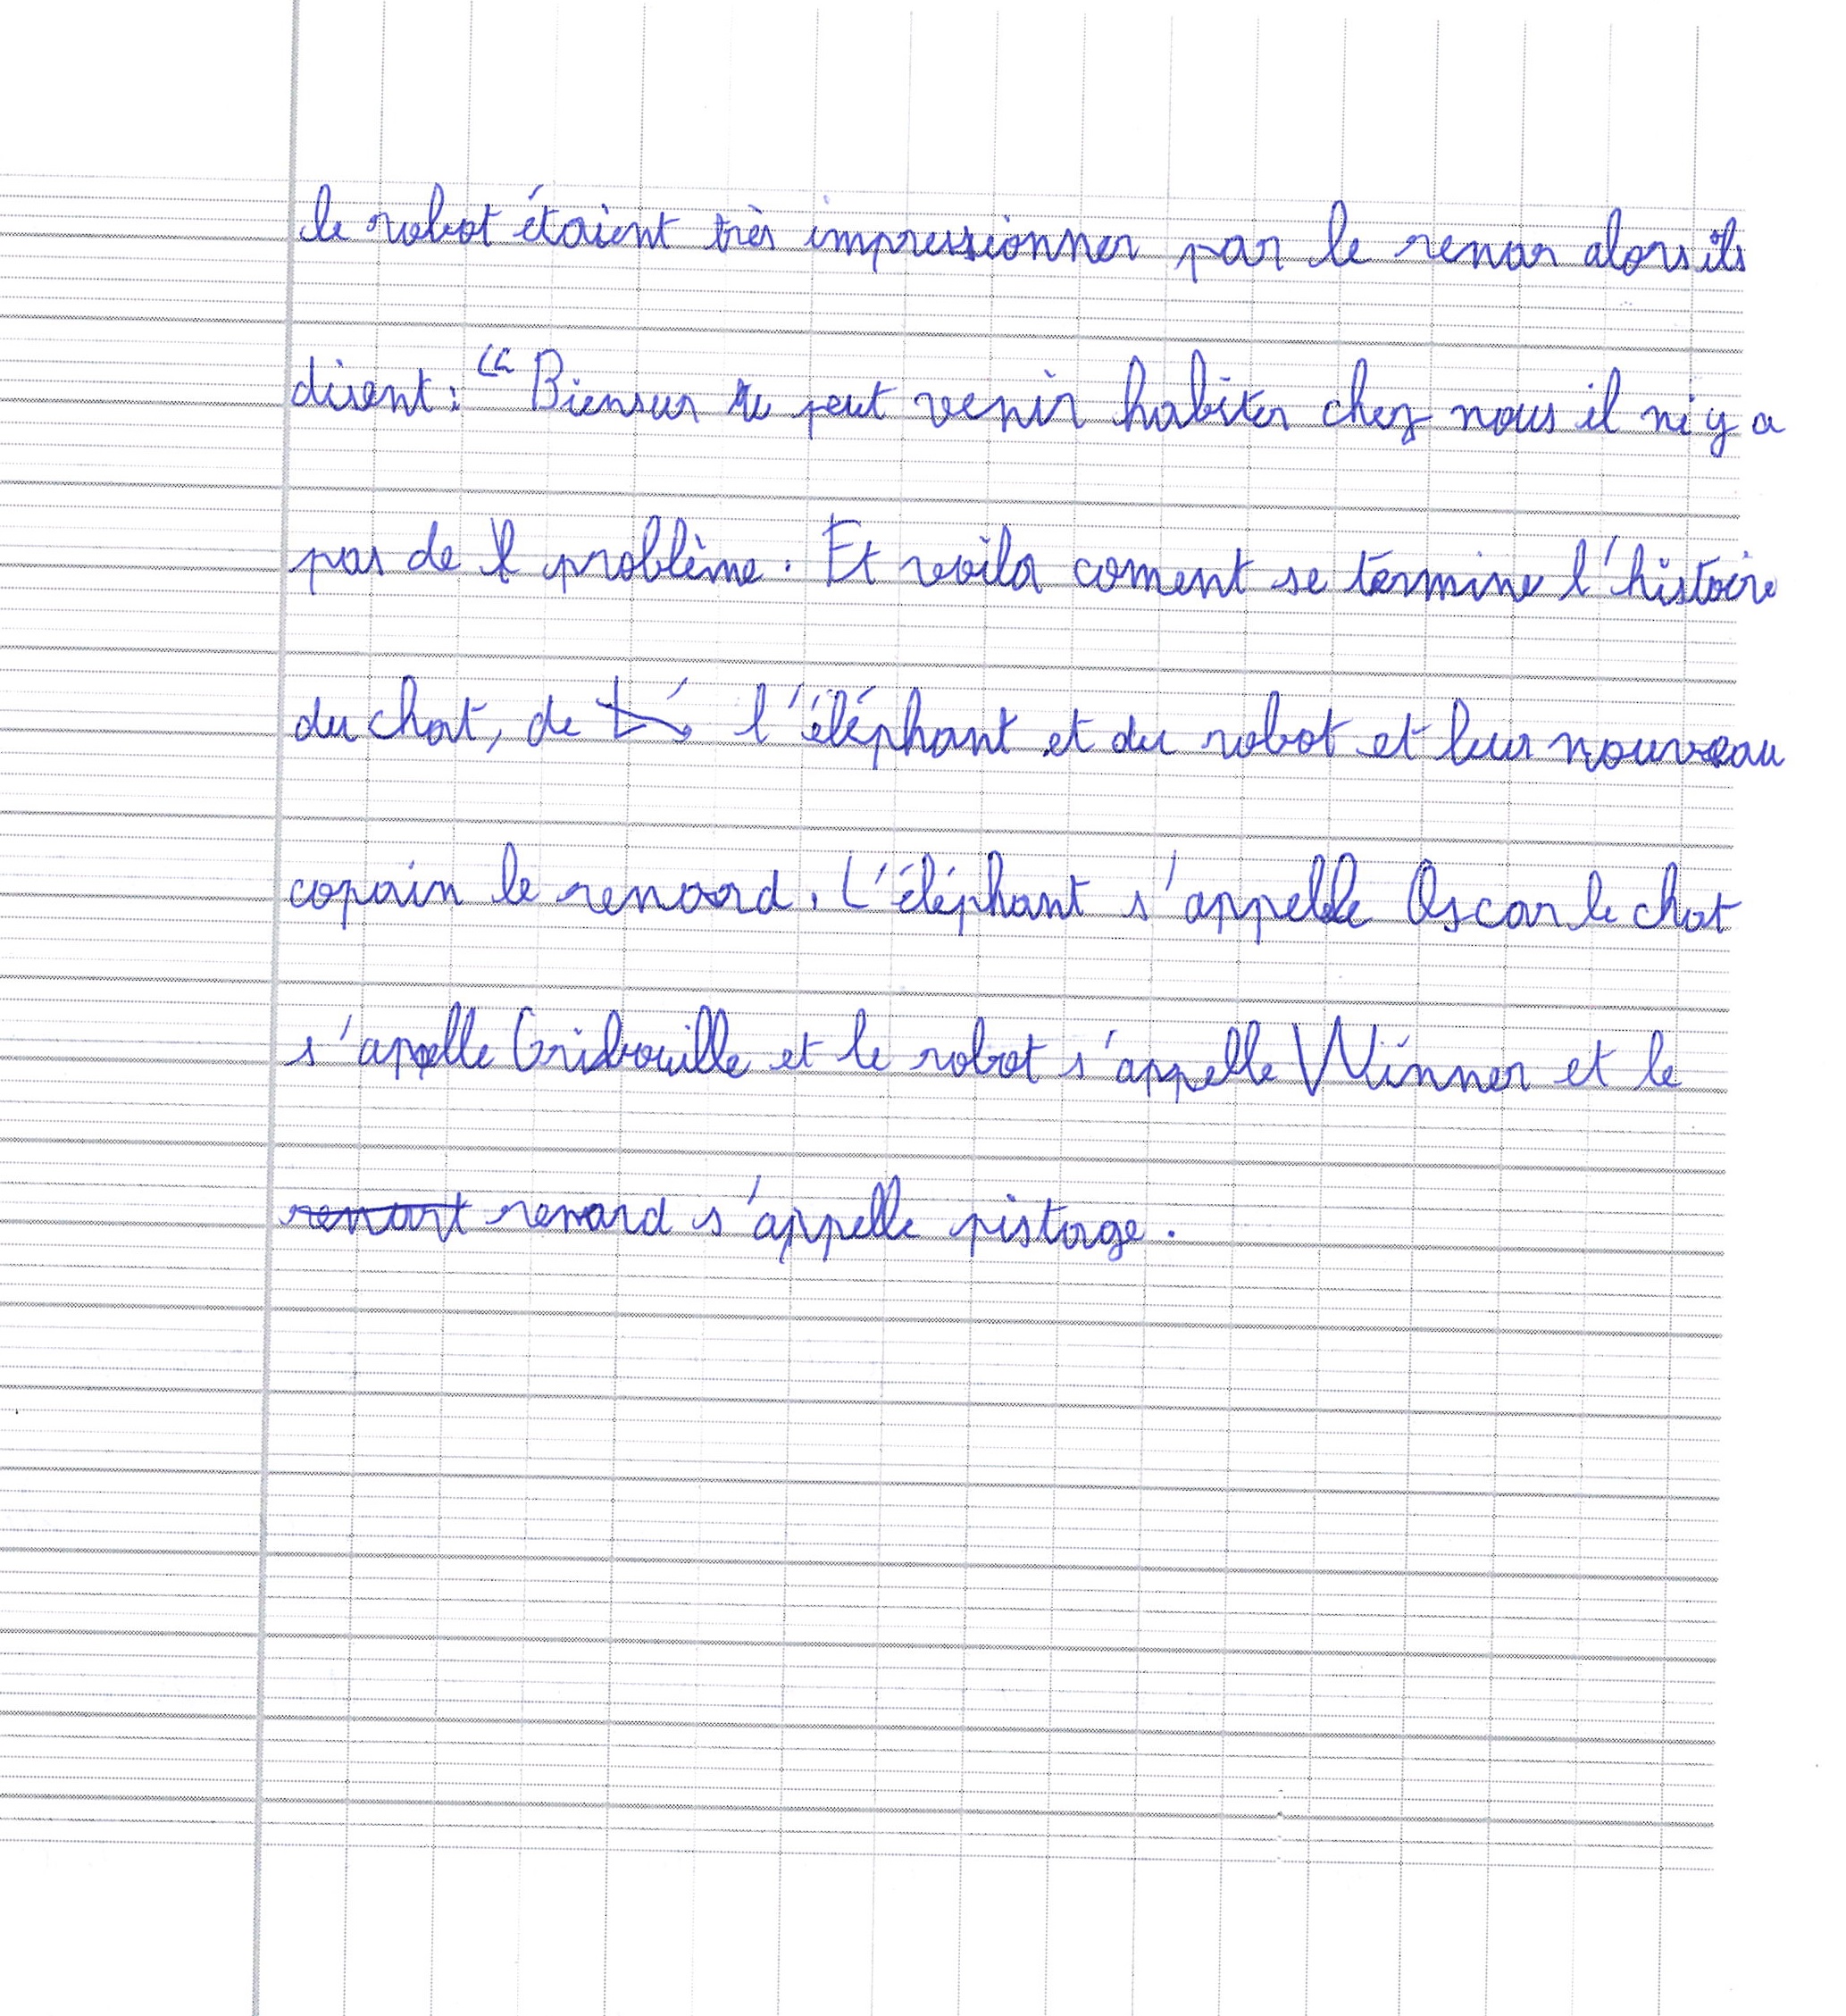 le robot étaient très impressionner par le renar alors ils
disent : “ Biensur tu peut venir habiter chez nous il ni y a
pas de problème. Et voila coment se termine l'histoire
du chat, de l'éléphant et du robot et leur nouveau
copain le renard. L'éléphant s'appelle Oscar le chat
s'apelle Gribouille et le robot s'appelle Winner et le
renart renard s'appelle pistage.